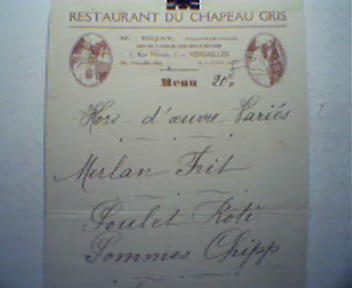 RESTAURANT DU CHAPEAU GRIS
VERSAILLES
Menu 20F
Hors d'œuvre Variés
Merlan Frit
Poulet Roti
Pommes Chipp